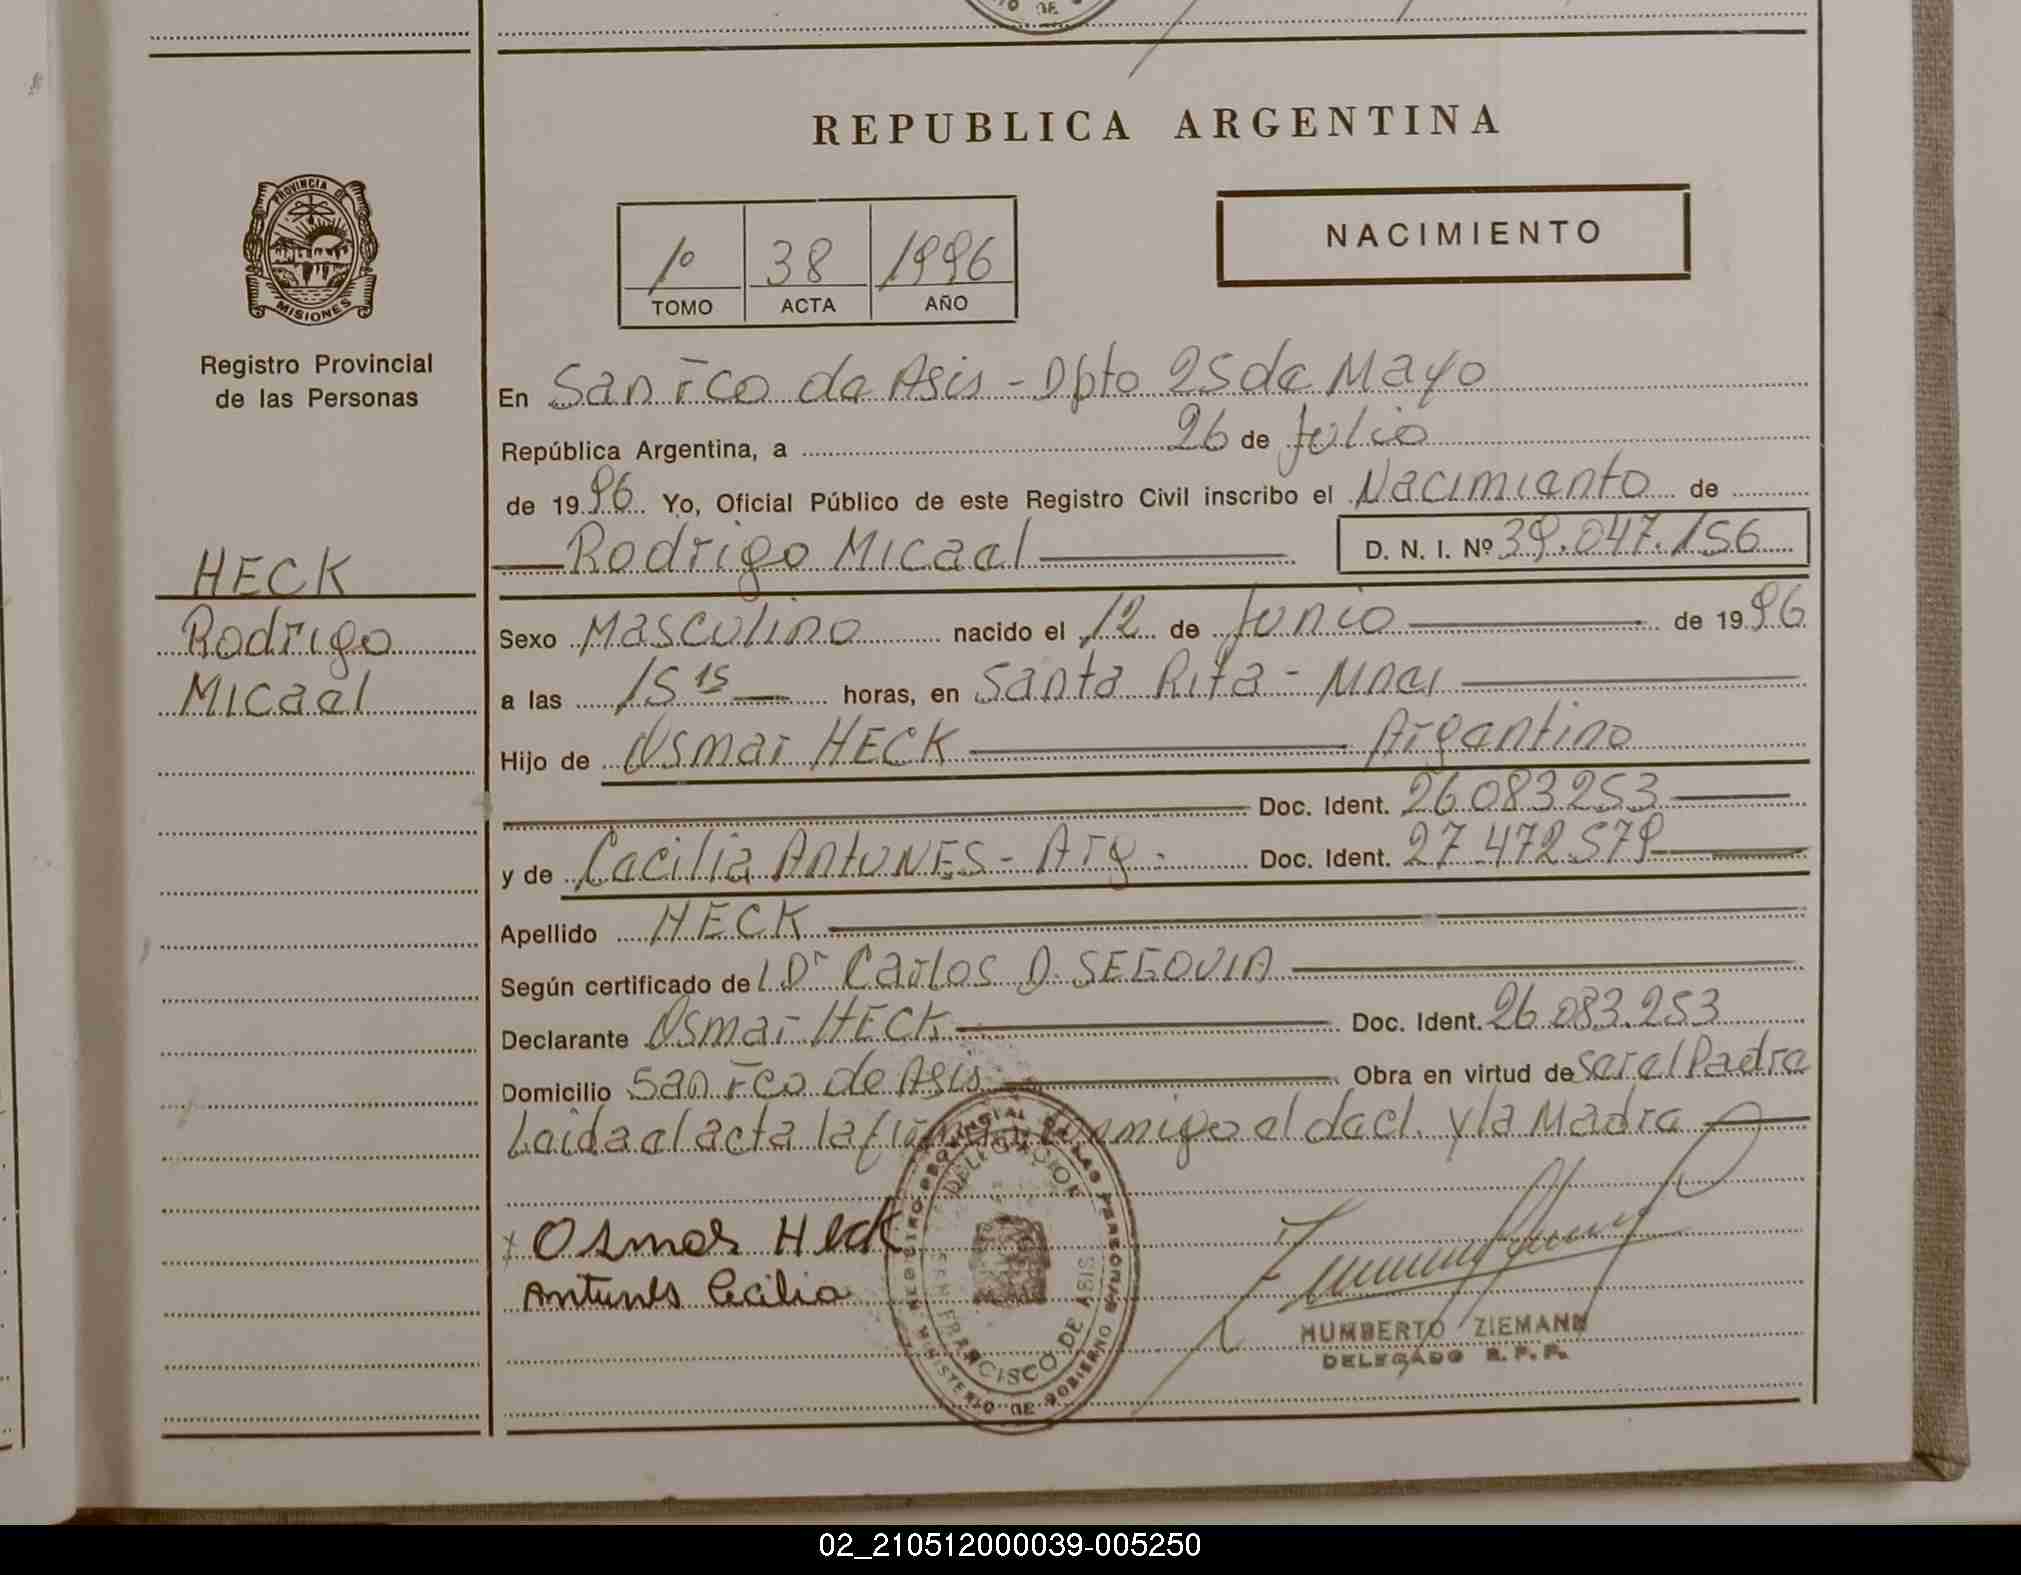 REPUBLICA ARGENTINA
PROVINCIA DE
MISIONES
Registro Provincial
de las Personas
1º 38 1996
TOMO ACTA AÑO
NACIMIENTO
En San Fco de Asis - Dpto 25 de Mayo
República Argentina, a 26 de Julio
de 1996 Yo, Oficial Público de este Registro Civil inscribo el Nacimiento de
Rodrigo Micael D. N. I. Nº 39.047.156
HECK
Rodrigo
Micael
Sexo Masculino nacido el 12 de Junio de 1996
a las 15 15 horas, en Santa Rita - Mnes
Hijo de Osmar HECK Argentino
Doc. Ident. 26 083 253
y de Cecilia ANTUNES - Arg. Doc. Ident. 27 472 579
Apellido HECK
Según certificado de Dr Carlos D. SEGOVIA
Declarante Osmar HECK Doc. Ident. 26 083.253
Domicilio San Fco de Asis Obra en virtud de ser el Padre
Leida el acta la firman conmigo el decl. y la Madre
Osmar Heck
Antunes Cecilia
REGISTRO PROVINCIAL DE LAS PERSONAS
DELEGACION
SAN FRANCISCO DE ASIS
MINISTERIO DE GOBIERNO
HUMBERTO ZIEMANN
DELEGADO R.P.P.
02_210512000039-005250